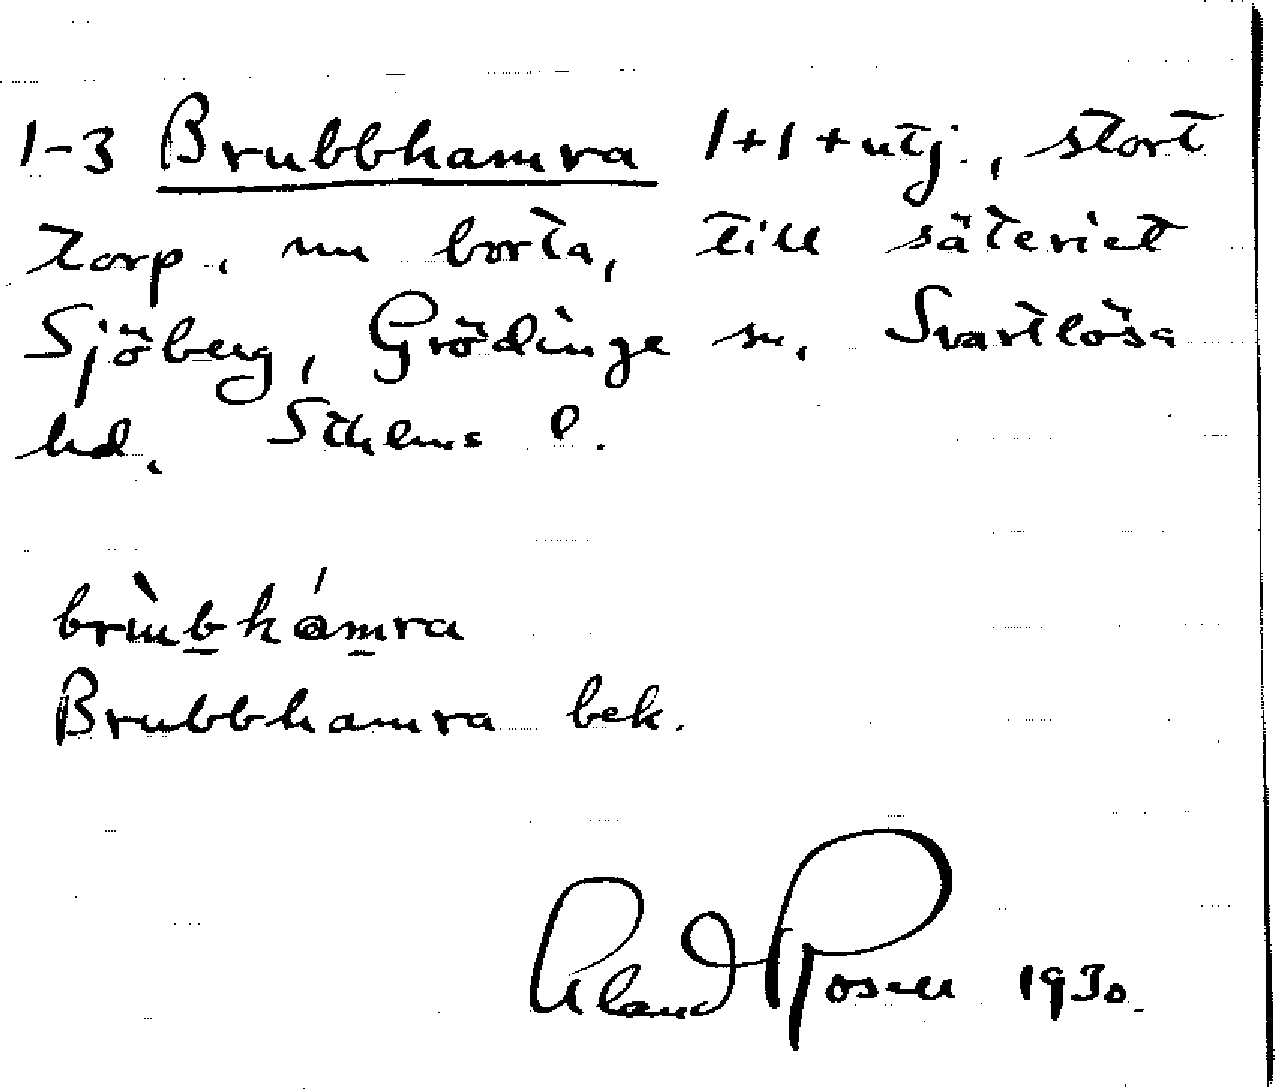 1-3 Brubbhamra 1+1+utj., stort
torp, nu borta, till säteriet
Sjöberg, Grödinge sn, Svartlösa
hd. Sthlms l.
brùbhámra
Brubbhamra bek.
Rland Rosell 1930.